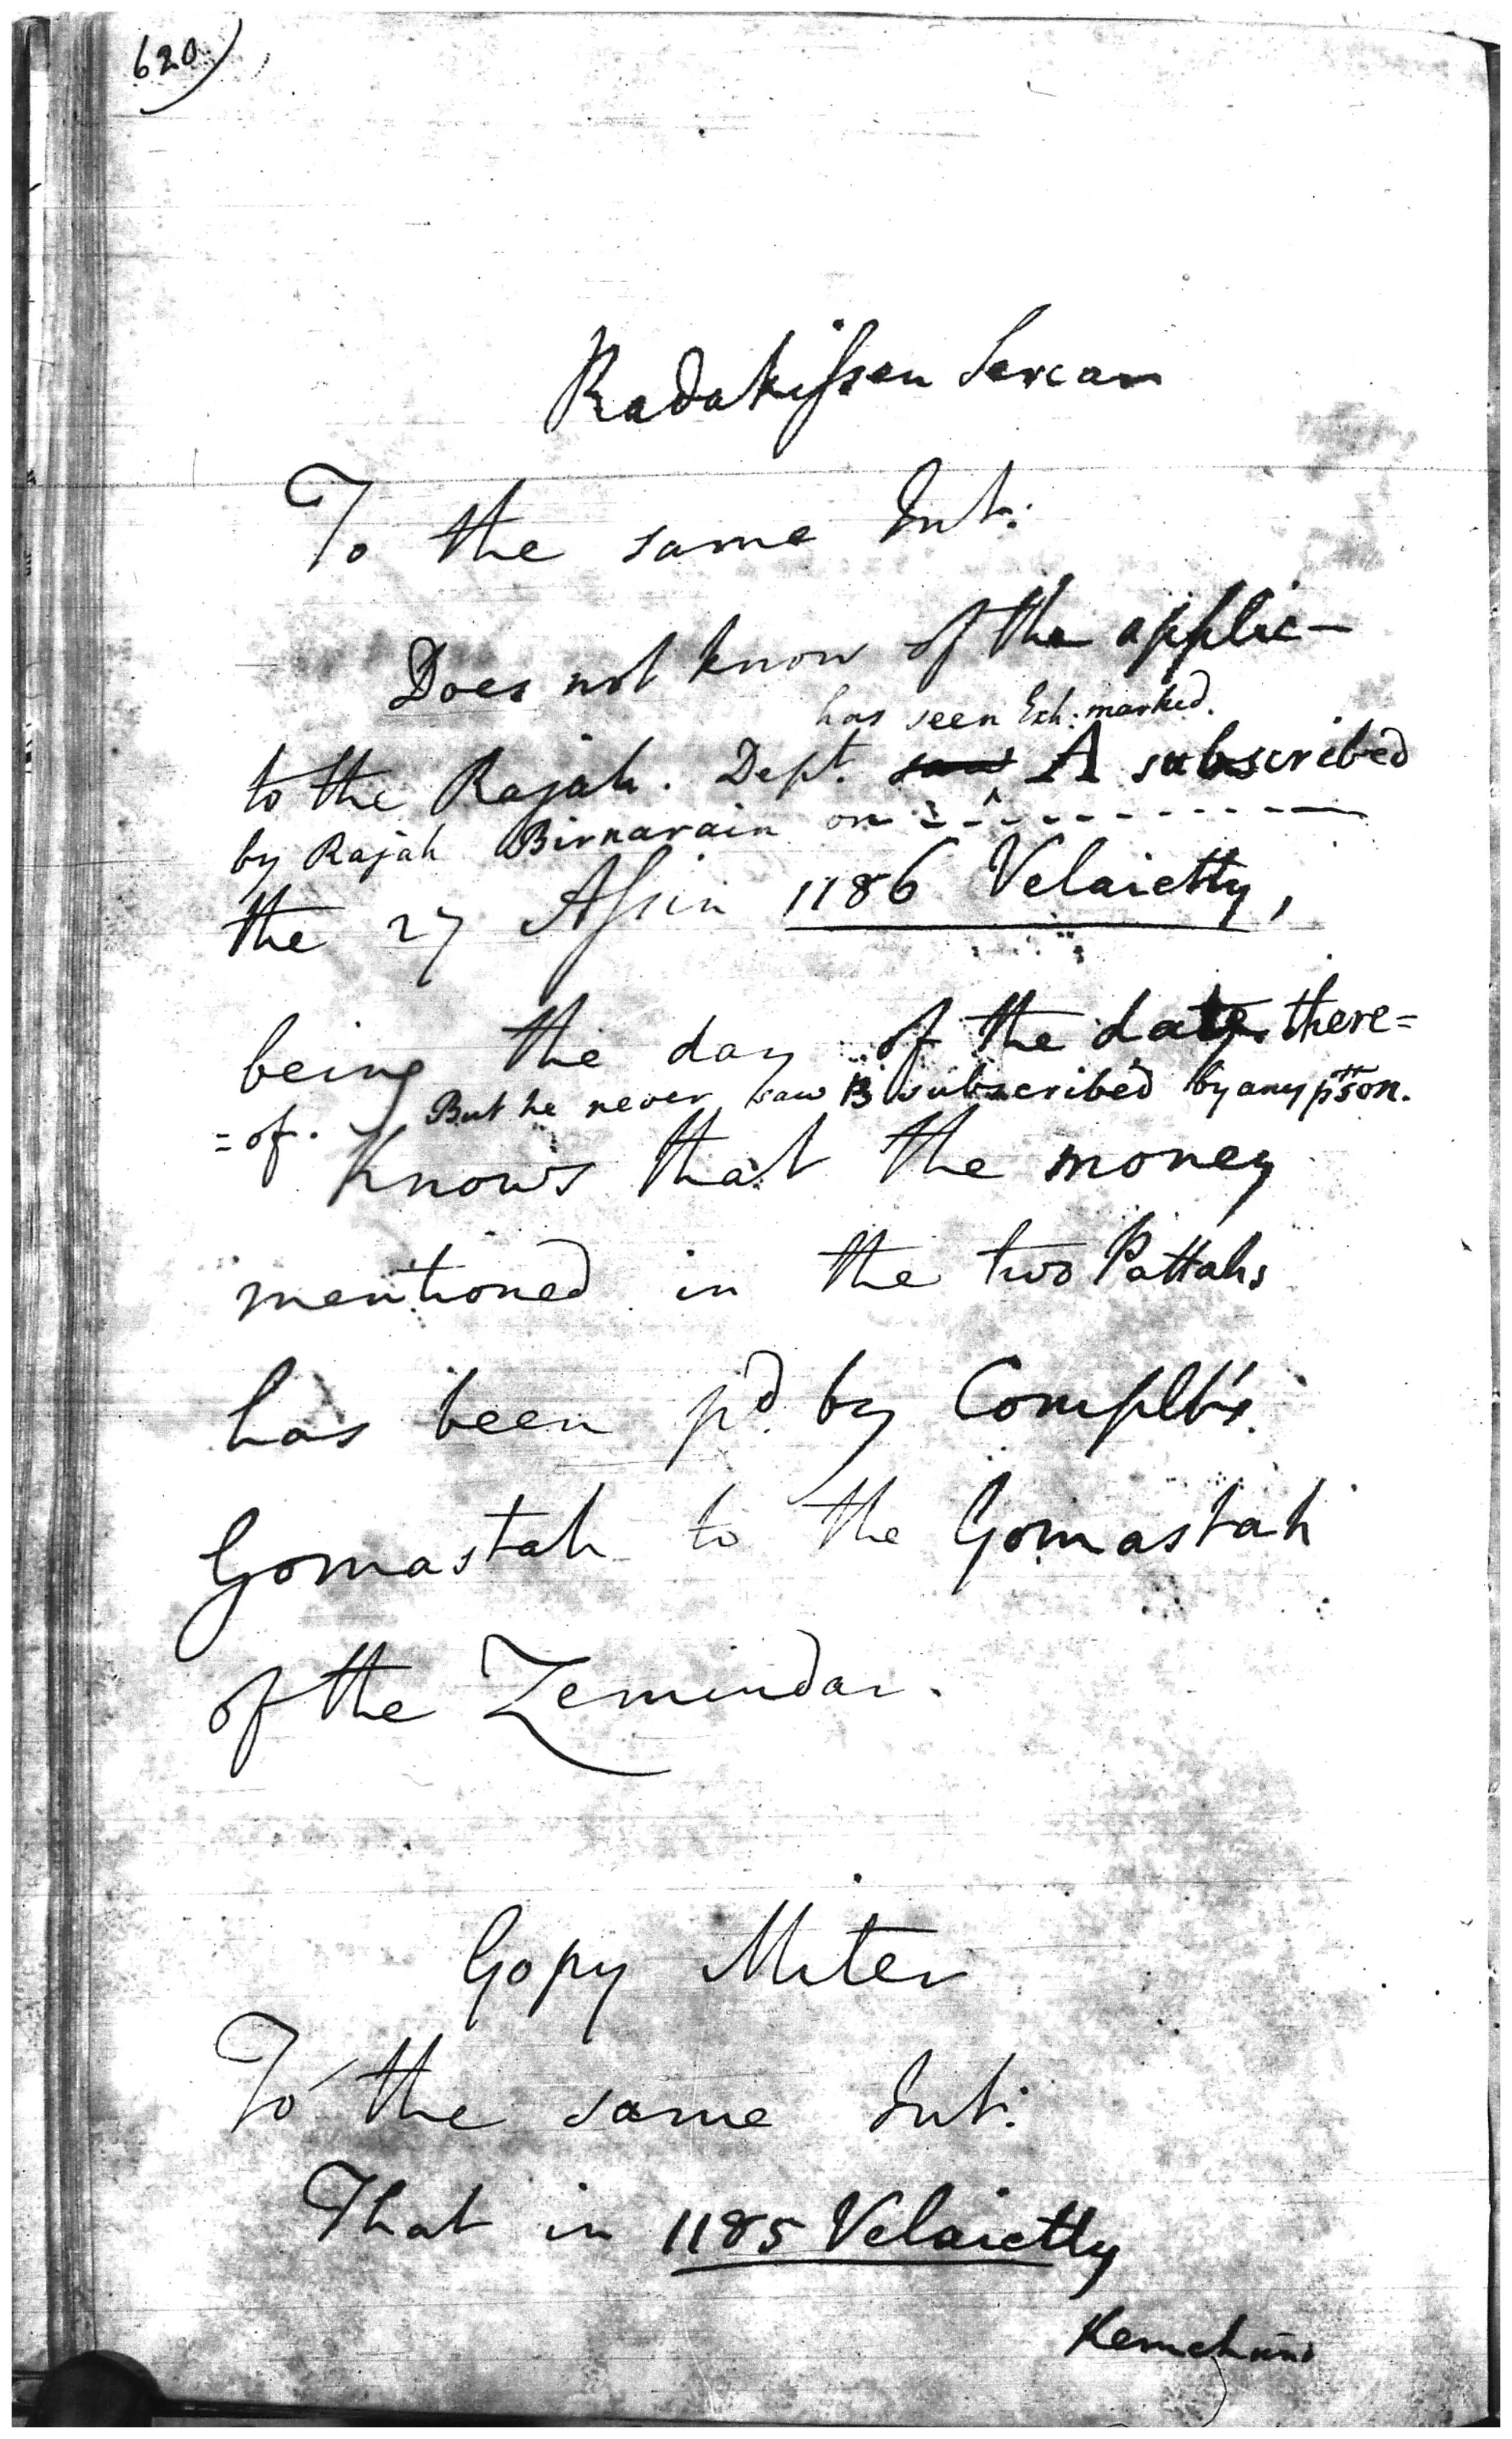 620)
Radakissen Sercar
To the same Int:
Does not know of the applic-
has seen Exh: marked.
to the Rajah. Dept. saw A subscribed
by Rajah Birnarain on
the 27 Assin 1186 Velaietty,
being the day of the date there=
=of. But he never saw B subscribed by any pson.
Knows that the money
mentioned in the two Pattahs
has been pd. by Complts.
Gomastah to the Gomastah
of the Zemindar.
Gopy Miter
To the same Int:
That in 1185 Velaietty